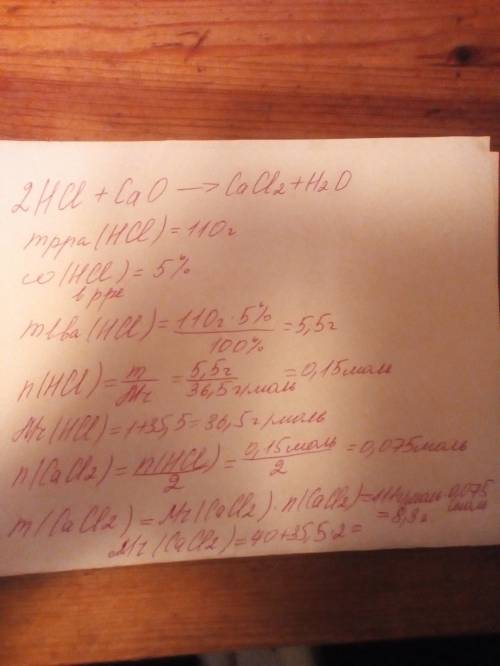 2HCl + CaO —> CaCl2 + H2O
mрра(HCl) = 110г
ω(HCl) = 5%
в рре
mвва(HCl) = 110г · 5% / 100% = 5,5г
n(HCl) = m / Mr = 5,5г / 36,5г/моль = 0,15моль
Mr(HCl) = 1+35,5 = 36,5г/моль
n(CaCl2) = n(HCl) / 2 = 0,15моль / 2 = 0,075моль
m(CaCl2) = Mr(CaCl2) · n(CaCl2) = 111г/моль · 0,075 моль
= 8,3г
Mr(CaCl2) = 40+35,5·2 =